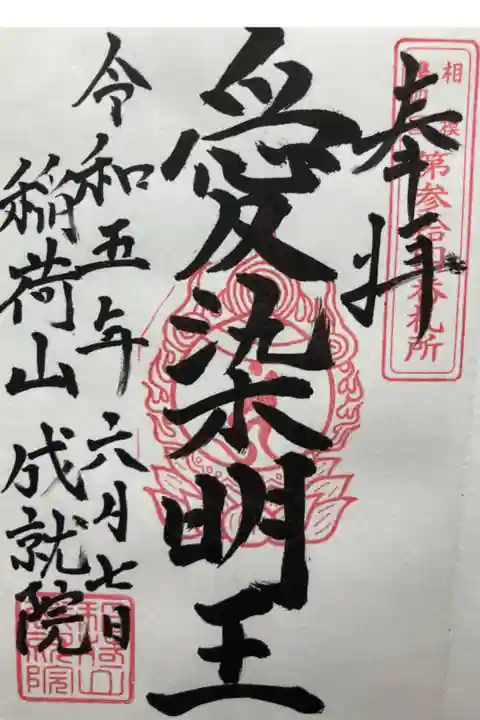 奉拝
相模
第参拾四番札所
愛染明王
令和五年六月七日
稲荷山 成就院
稲荷山
成就院